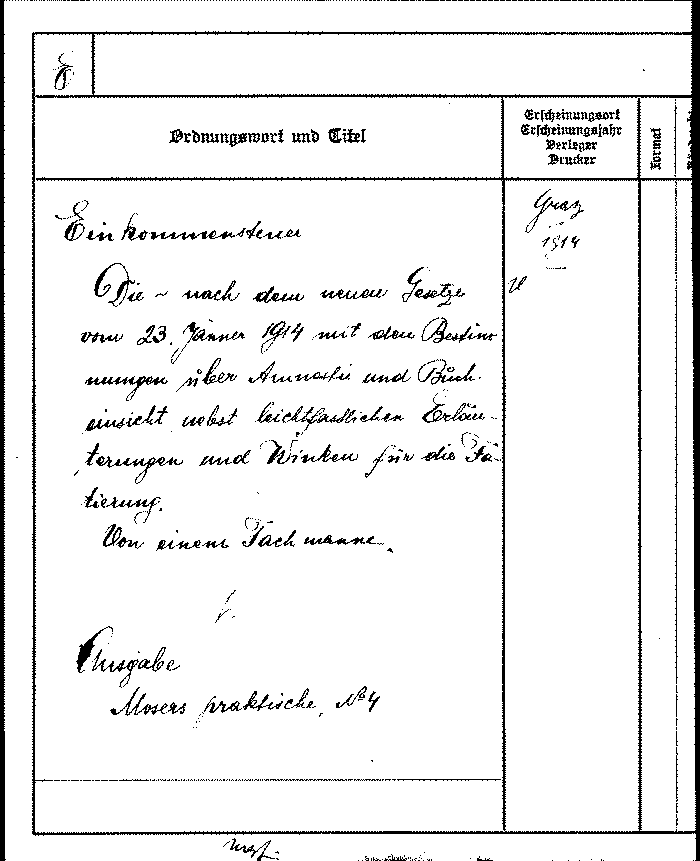 Ordnungswort und Titel
Erscheinungsort
Erscheinungsjahr
Verleger
Drucker
Format
Graz
1914
Einkommensteuer
Die ~ nach dem neuen Gesetze
vom 23. Jänner 1914 mit den Bestim
mungen über Amnestie und Buch-
einsicht nebst leichtfasslichen Erläu-
terungen und Winken für die Fa-
tierung.
Von einem Fachmanne.
Ausgabe
Mosers praktische, No 4